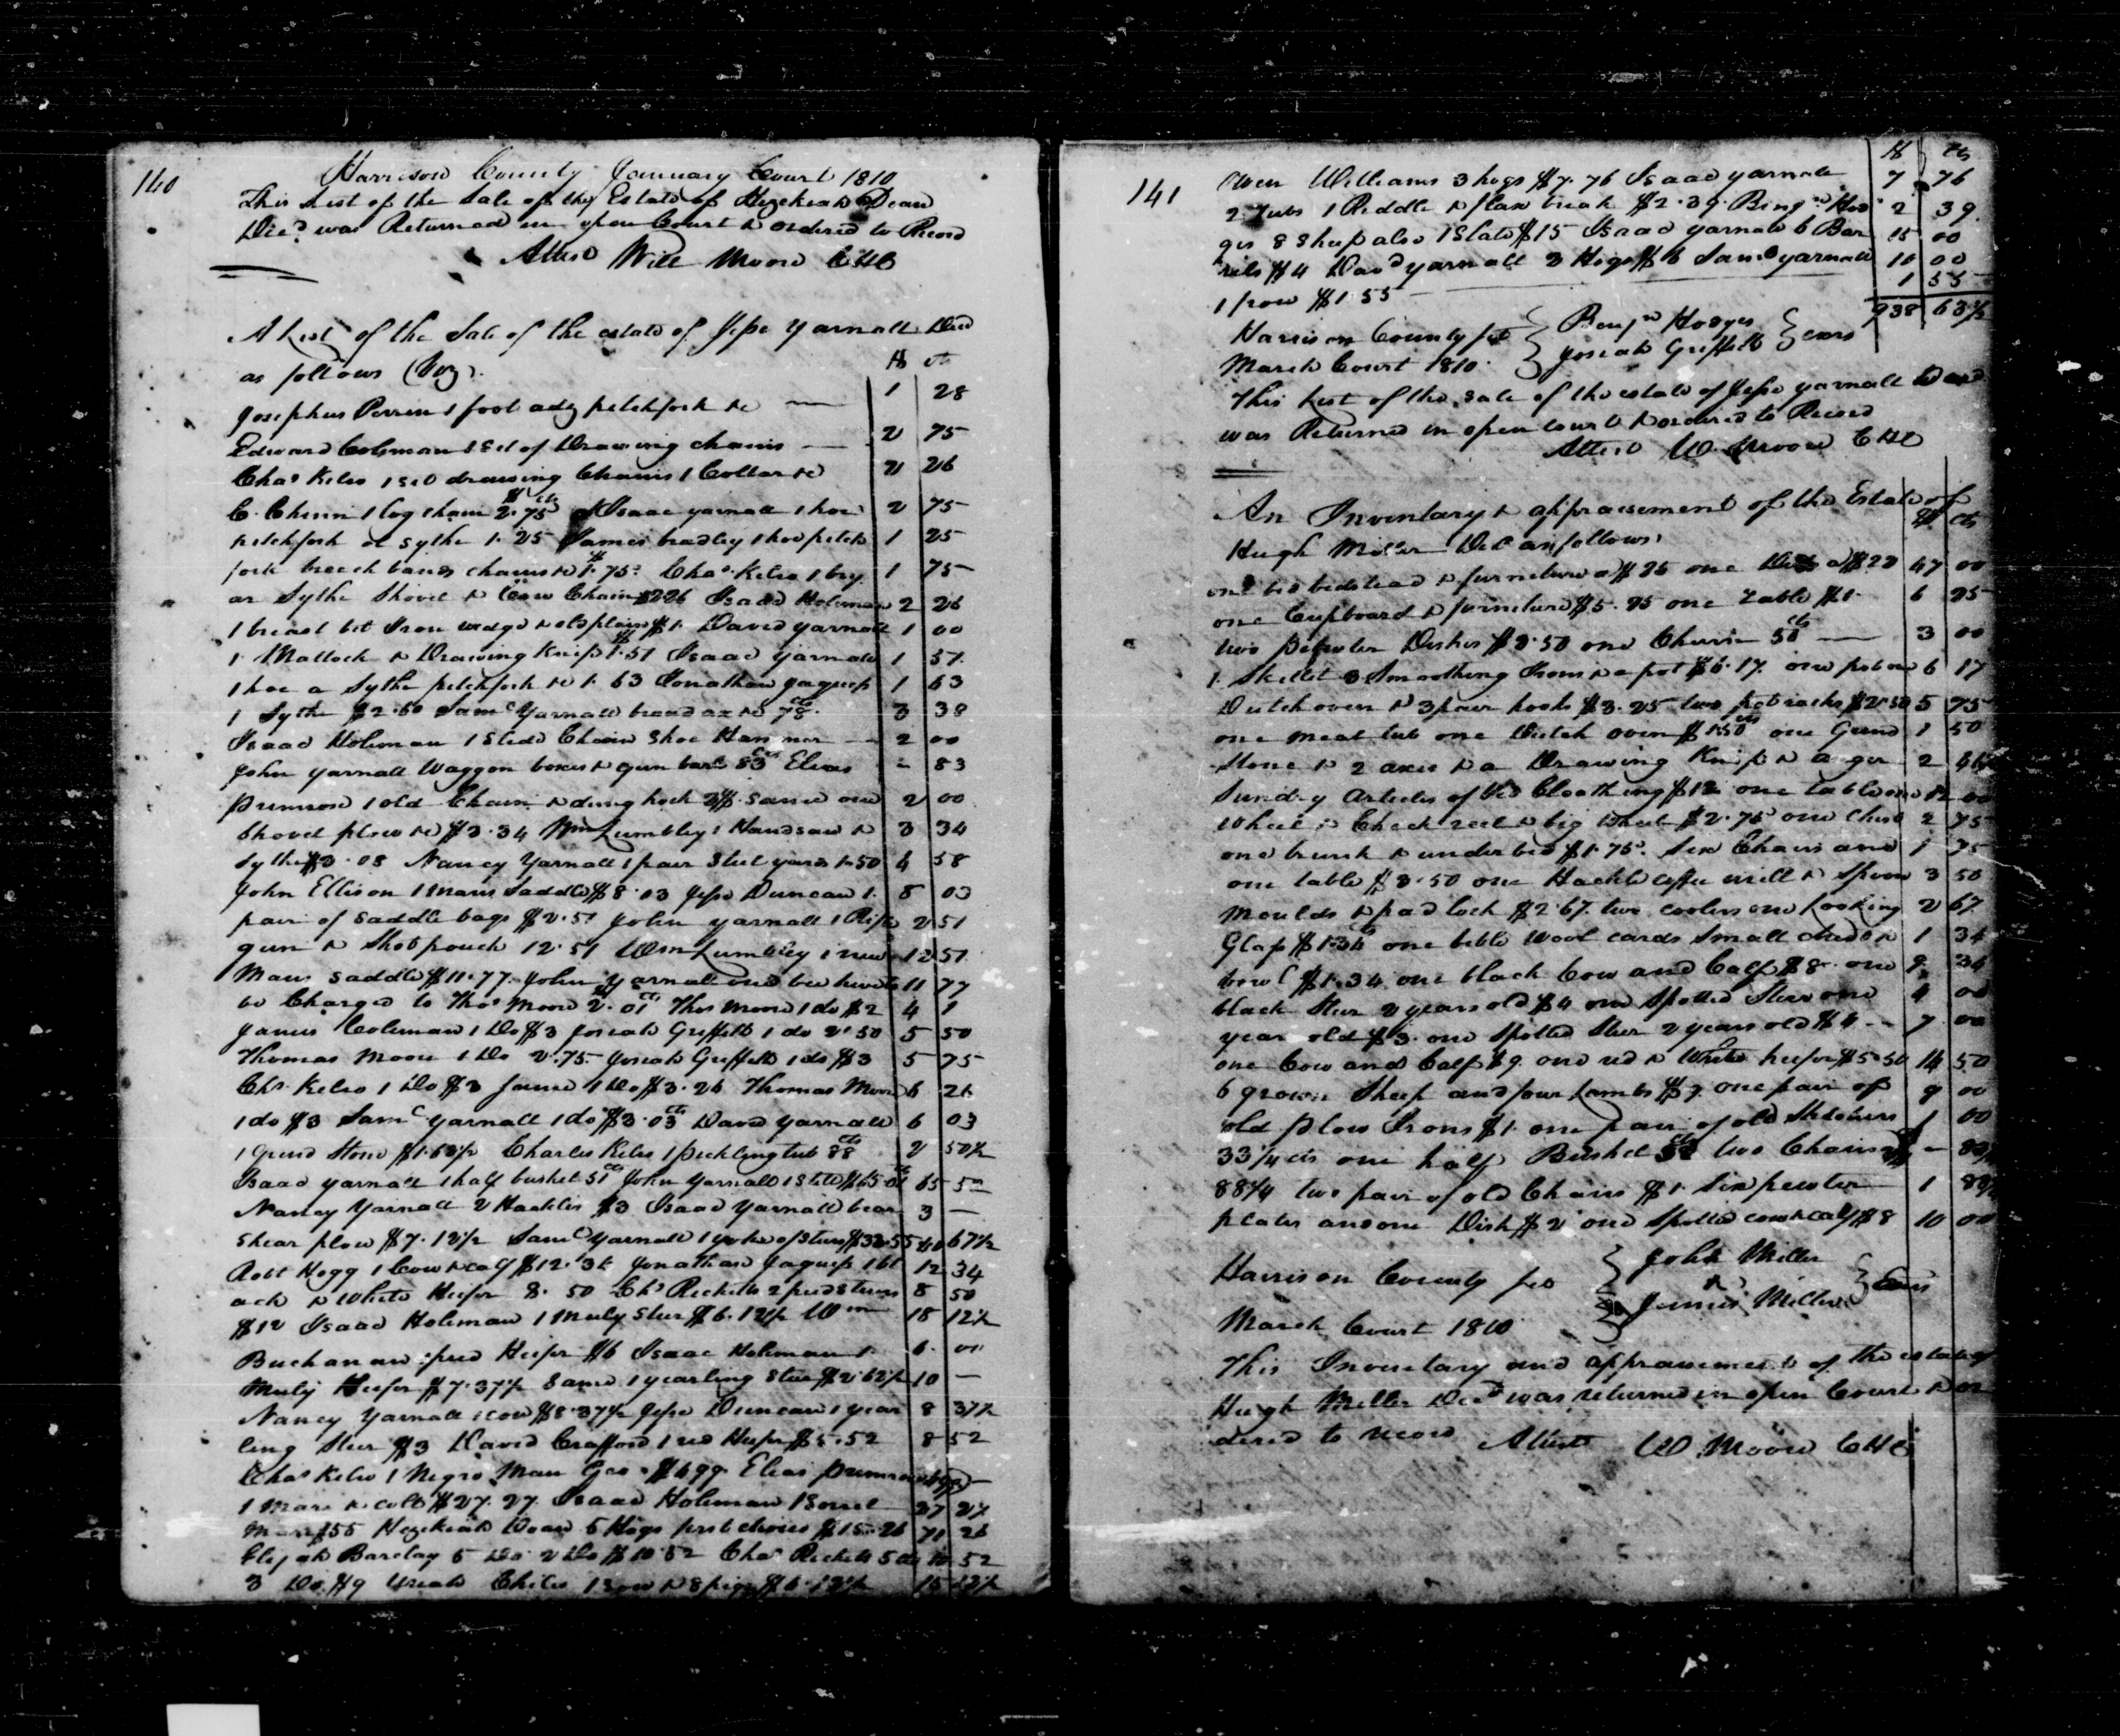 140
Harrison County January Court 1810
This List of the Sale of the Estate of Hezekiah Dean
Decd was Returned in open Court & ordered to Record
Attest Will Moore CHC
A List of the Sale of the estate of Jesse Yarnall Decd
as follows (Viz).
$ cts
Josephus Perrin 1 foot adz pitchfork &c — 1 28
Edward Coleman 1 Set of Drawing chains — 2 75
Chas Kelso 1 set drawing Chains 1 Collar &c 2 26
C. Chinn 1 log chain 2.75 Isaac yarnall 1 hoe 2 75
pitchfork & sythe 1.25 James bradley 1 hoe pitch 1 25
fork breech bands chains &c 1.75 Chas Kelso 1 bry 1 75
ar Sythe Shovel & Chain $2 26 Isaac Holeman 2 26
1 breast bit Iron wedge & old plain $1. David yarnall 1 00
1 Mattock & Drawing Knife 1.51 Isaac yarnall 1 51
1 hoe a Sythe pitchfork &c 1.63 Jonathan Jaquess 1 63
1 Sythe $2.60 Saml Yarnall broad ax &c 78 cts 3 38
Isaac Holeman 1 Stedd Chain Shoe Hammer — 2 00
John yarnall Waggon boxes & gun barl 83 cts Elias - 83
Pumrow 1 old Chain & dung hook 2$. same one 2 00
Shovel plow &c $3.34 Wm Lumbley 1 Handsaw & 3 34
Sythe $3.08 Nancy Yarnall 1 pair Steel yards 1.50 4 58
John Ellison 1 Mans Saddle $8.03 Jesse Duncan 1 8 03
pair of Saddle bags $2.51 John yarnall 1 Rifle 2 51
gun & Shot pouch 12.51 Wm Lumbley 1 new 12 51
Mans saddle $11.77. John Yarnall one bee hive to 11 77
be Charged to Thos Moore 2.01 Thos Moore 1 do $2 4 1
James Coleman 1 Do $3 Josiah Griffith 1 do 2.50 5 50
Thomas Moore 1 Do 2.75 Josiah Griffith 1 do $3 5 75
Chs Kelso 1 Do $3 same 1 Do $3.26 Thomas Moore 6 26
1 do $3 Saml yarnall 1 do $3.03 cts David yarnall 6 03
1 Grind Stone $1.62½ Charles Kelso 1 pickling tub 88 cts 2 50½
Isaac yarnall 1 half bushel 51 cts John Yarnall 1 Still $65.01 65 52
Nancy Yarnall 2 Hackles $3 Isaac Yarnall bear 3 —
Shear plow $7.12½ Saml Yarnall 1 yoke of Steers $33.55 40 67½
Robt Hogg 1 Cow & calf $12.34 Jonathan Jaquess 1 bl 12 34
ack & white Heifer 8.50 Chs Ricketts 2 pied Steers 8 50
$12 Isaac Holeman 1 Muly Steer $6.12½ Wm 18 12½
Buchanan 1 pied Heifer $6 Isaac Holeman 1 6 00
Muly Heifer $7.37½ Same 1 yearling Steer $2.62½ 10 —
Nancy Yarnall 1 cow $8.37½ Jesse Duncan 1 year 8 37½
ling Steer $3 David Crafford 1 red Heifer $5.52 8 52
Chas Kelso 1 Negro Man Geo. $499. Elias Pumrow 499 —
1 Mare & colt $27.27. Isaac Holeman 1 Sorrel 27 27
Mare $55 Hezekiah Dean 5 Hogs first choice $15.26 71 26
Elijah Barclay 5 Do 2 Do $10.52 Chas Ricketts 5 do 10 52
3 Do $9 Uriah Chiles 1 Sow & 8 pigs $6.12½ 15 12½
141
$ cts
Owen Williams 3 hogs $7.76 Isaac yarnall 7 76
2 Tubs 1 Riddle & flax break $2.39. Benjn Hod 2 39
ges 8 Sheep also 1 Slate $15 Isaac yarnall 6 Bar 15 00
rels $4 David yarnall 3 Hogs $6 Saml yarnall 10 00
1 sow $1.55 — 1 55
938 63½
Harrison County sct Benjn Hodges
March Court 1810. Josiah Griffith exrs
This List of the sale of the estate of Jesse yarnall Decd
was Returned in open court & ordered to Record
Attest W. Moore CHC
An Inventory & appraisement of the Estate of
Hugh Miller Decd as follows, $ cts
one bed bedstead & furniture a $25 one Do a $22 47 00
one Cupboard & furniture $5.25 one Table $1. 6 25
two Pewter Dishes $2.50 one Churn 50 cts — 3 00
1 Skillet 3 Smoothing Irons & a pot $6.17. one pot one 6 17
Dutch oven & 3 pair hooks $3.25 two pot racks $2.50 5 75
one meat tub one Dutch oven $1.50 cts one Grind 1 50
Stone & 2 axes & a Drawing Knife & auger 2
Sundry Articles of Cloathing $12 one table one 12 00
Wheel & Check reel & big wheel $2.75 one Chest 2 75
one trunk & under bed $1.75. Six Chairs and 1 75
one table $3.50 one Hackle coffee mill & Spoon 3 50
Moulds & pad lock $2.67. two coolers one Looking 2 67
Glass $1.34 cts one bible wool cards Small & 1 34
bowl $1.34 one black Cow and Calf $8. one 9 34
black Steer 2 years old $4 one Spotted Steer one 4 00
year old $3. one Spotted Steer 2 years old $4 - 7 00
one Cow and Calf $9. one red & White heifer $5.50 14 50
6 grown Sheep and four Lambs $9. one pair of 9 00
old plow Irons $1. one pair of old 1 00
33¼ cts one half Bushel 50 two Chains —
88¼ two pair of old Chains $1. Six pewter 1
plates and one Dish $2 one Spotted cow & calf $8 10 00
Harrison County sct John Miller
March Court 1810 James Miller Exrs
This Inventory and appraisement of the estate of
Hugh Miller Decd was returned in open Court & or
dered to record Attest W Moore CHC